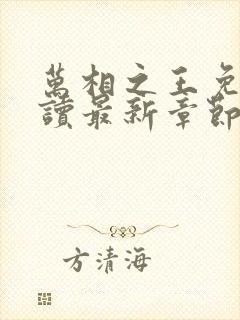 萬相之王免
讀最新章節
方清海